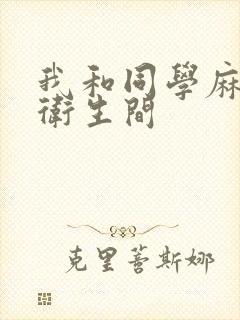 我和同學麻
衛生間
克里蒼斯娜